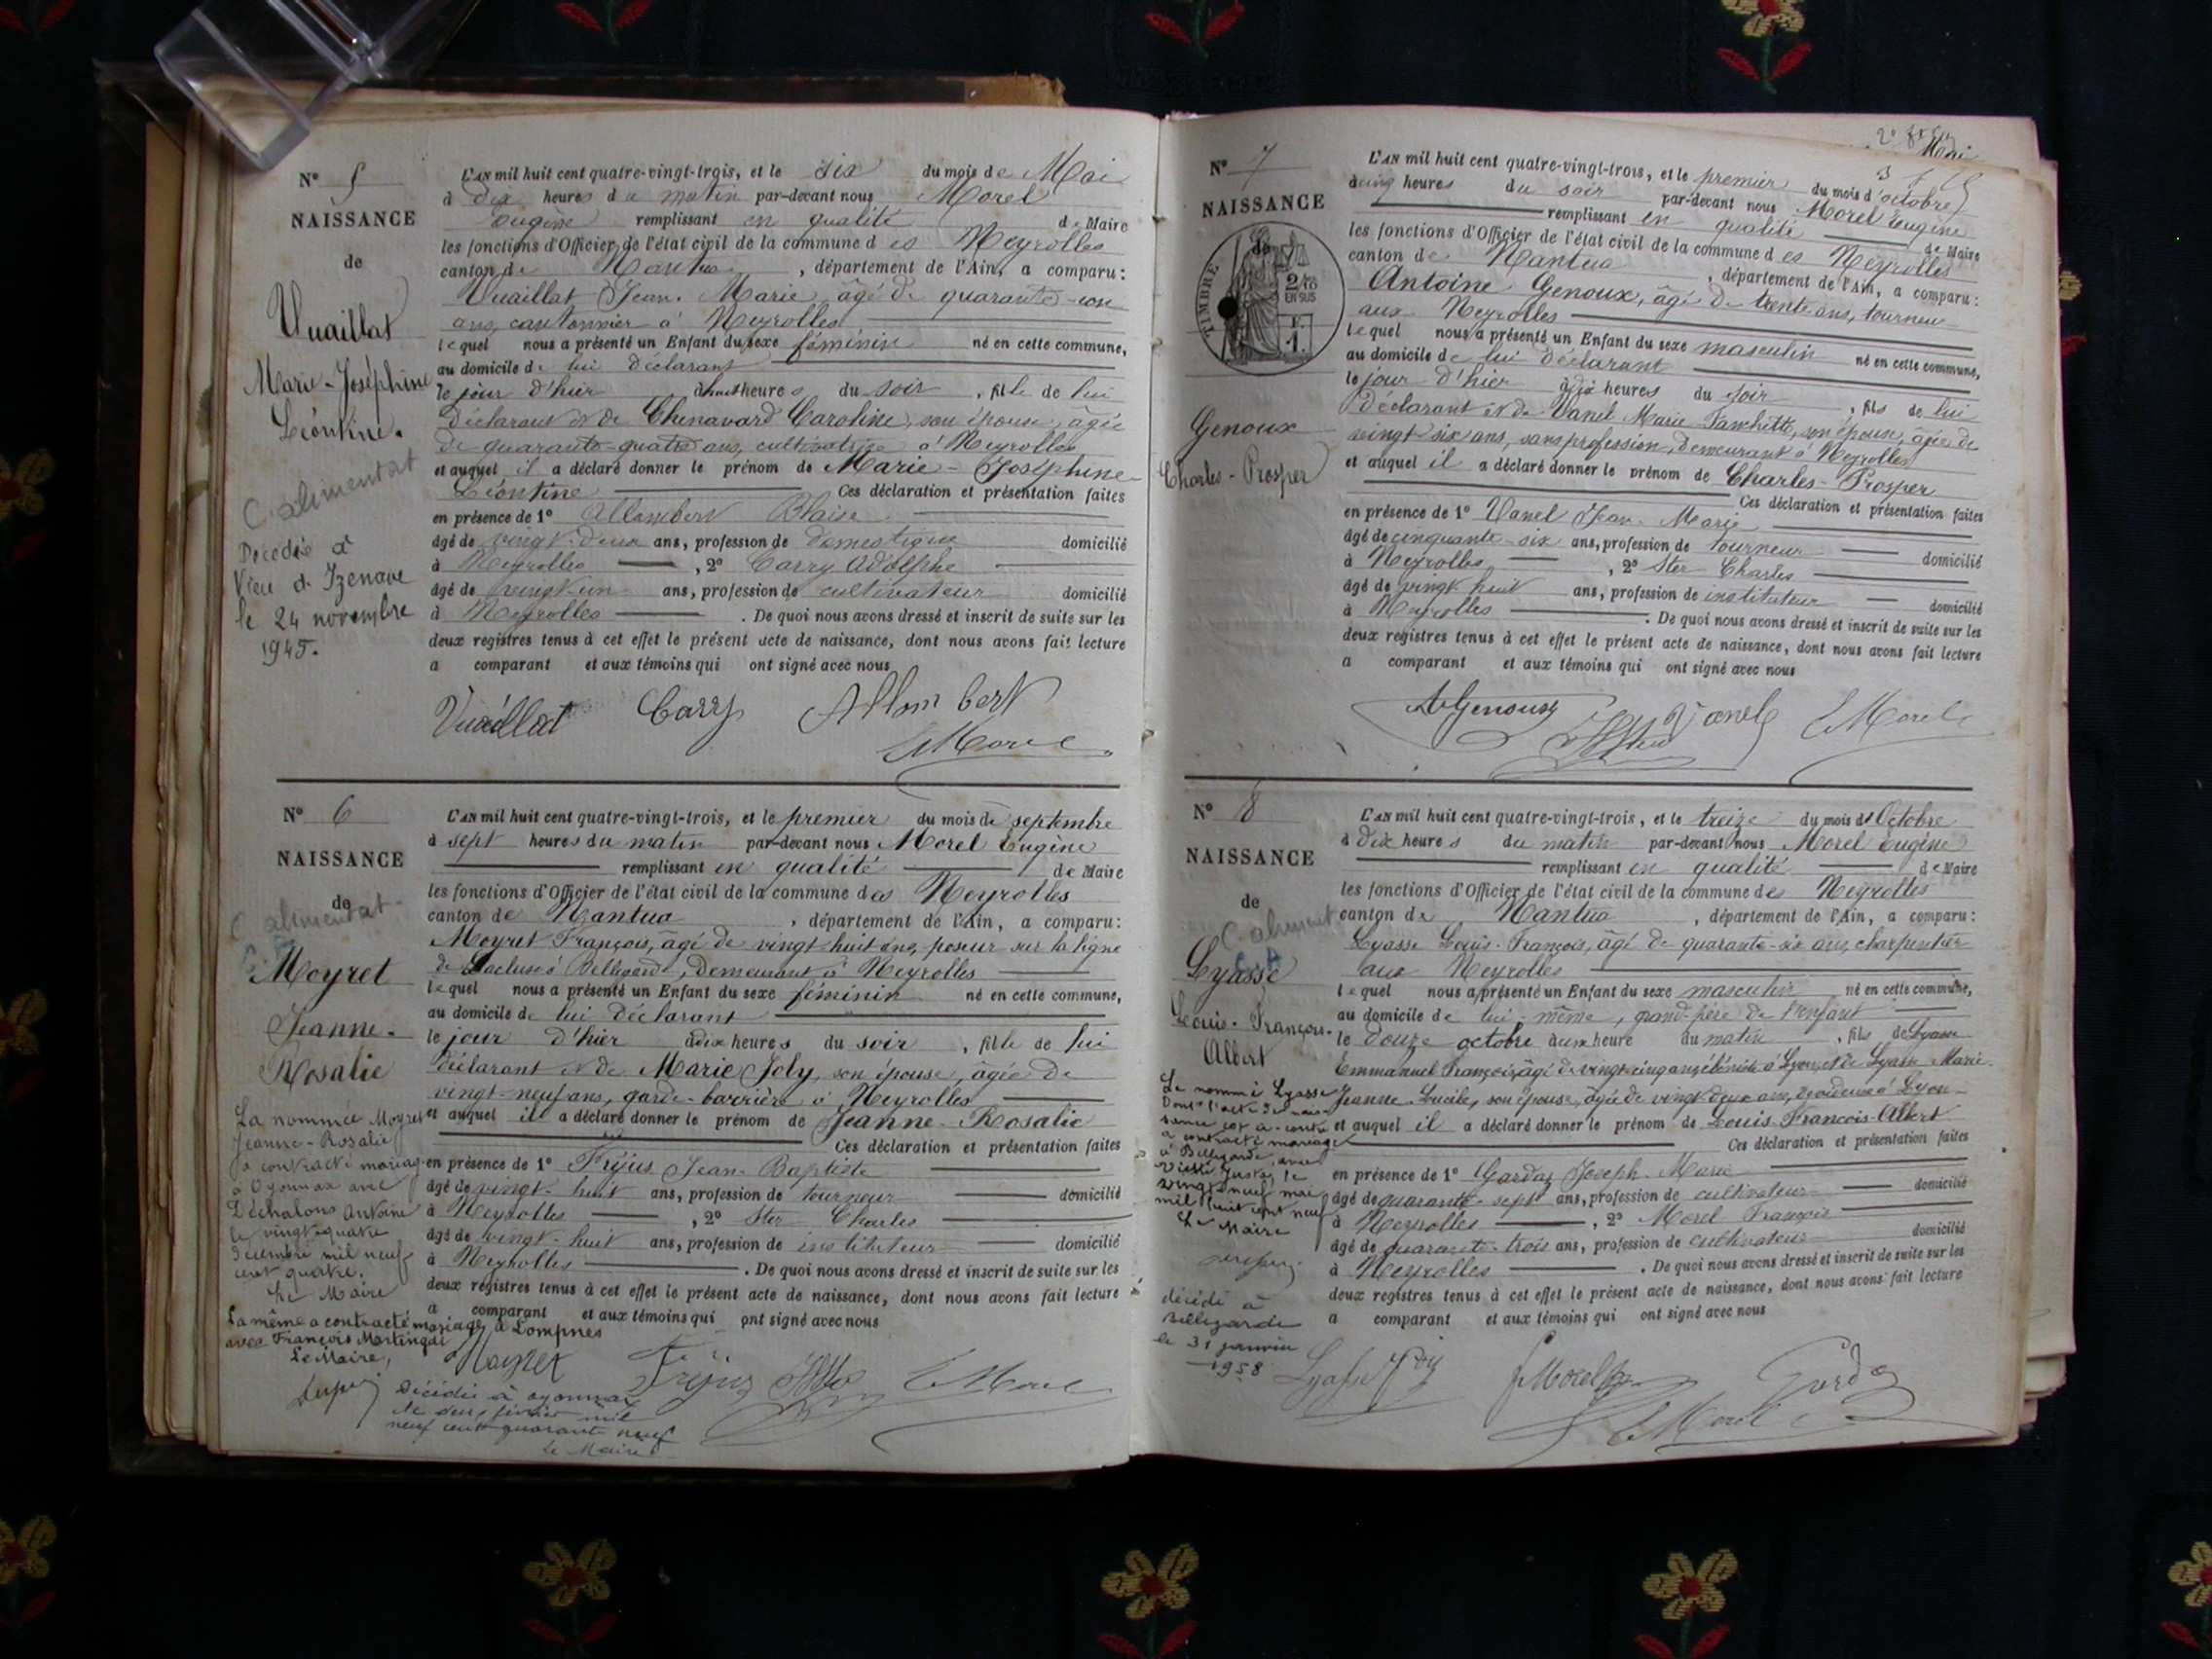 N° 5
NAISSANCE
de
Vuaillat
Marie-Joséphine
Léontine.
C. alimentat
Décédée à
Vieu d'Izenave
le 24 novembre
1945.
L'AN mil huit cent quatre-vingt-trois, et le six du mois de Mai
à dix heures du matin par-devant nous Morel
Eugène remplissant en qualité de Maire
les fonctions d'Officier de l'état civil de la commune des Neyrolles
canton de Nantua, département de l'Ain, a comparu:
Vuaillat Jean-Marie, âgé de quarante-
ans, cantonnier à Neyrolles
lequel nous a présenté un Enfant du sexe féminin né en cette commune,
au domicile de lui déclarant
le jour d'hier à huit heures du soir, fille de lui
déclarant et de Chenavard Caroline, son épouse, âgée
de quarante-quatre ans, cultivatrice à Neyrolles
et auquel il a déclaré donner le prénom de Marie-Joséphine-
Léontine Ces déclaration et présentation faites
en présence de 1° Allombert Blaise
âgé de vingt-deux ans, profession de domestique domicilié
à Neyrolles, 2° Carry Adolphe
âgé de vingt-un ans, profession de cultivateur domicilié
à Neyrolles. De quoi nous avons dressé et inscrit de suite sur les
deux registres tenus à cet effet le présent acte de naissance, dont nous avons fait lecture
a comparant et aux témoins qui ont signé avec nous
Vuaillat Carry Allombert
E Morel
N° 6
NAISSANCE
de
C alimentat
Moyret
Jeanne-
Rosalie
La nommée Moyret
Jeanne-Rosalie
a contracté mariage
à Oyonnax avec
Déchalons Antoine
le vingt-quatre
décembre mil neuf
cent quatre.
Le Maire
La même a contracté mariage à Lompnes
avec François Martingai
Le Maire,
L'AN mil huit cent quatre-vingt-trois, et le premier du mois de septembre
à sept heures du matin par-devant nous Morel Eugène
remplissant en qualité de Maire
les fonctions d'Officier de l'état civil de la commune des Neyrolles
canton de Nantua, département de l'Ain, a comparu:
Moyret François, âgé de vingt-huit ans, poseur sur la ligne
de Lacluse à Bellegarde, demeurant à Neyrolles
lequel nous a présenté un Enfant du sexe féminin né en cette commune,
au domicile de lui déclarant
le jour d'hier à dix heures du soir, fille de lui
déclarant et de Marie Joly, son épouse, âgée de
vingt-neuf ans, garde-barrière à Neyrolles
et auquel il a déclaré donner le prénom de Jeanne-Rosalie
Ces déclaration et présentation faites
en présence de 1° Fréjus Jean-Baptiste
âgé de vingt-huit ans, profession de tourneur domicilié
à Neyrolles, 2° Ster Charles
âgé de vingt-huit ans, profession de instituteur domicilié
à Neyrolles. De quoi nous avons dressé et inscrit de suite sur les
deux registres tenus à cet effet le présent acte de naissance, dont nous avons fait lecture
a comparant et aux témoins qui ont signé avec nous
Moyret Fréjus Ster E Morel
Décédée à Oyonnax
le deux février mil
neuf cent quarante neuf
Le Maire
N° 7
NAISSANCE
de
TIMBRE
2/10
EN SUS
F.
1.
Genoux
Charles-Prosper
L'AN mil huit cent quatre-vingt-trois, et le premier du mois d'octobre
à cinq heures du soir par-devant nous Morel Eugène
remplissant en qualité de Maire
les fonctions d'Officier de l'état civil de la commune des Neyrolles
canton de Nantua, département de l'Ain, a comparu:
Antoine Genoux, âgé de trente ans, tourneur
aux Neyrolles
lequel nous a présenté un Enfant du sexe masculin né en cette commune,
au domicile de lui déclarant
le jour d'hier à dix heures du soir, fils de lui
déclarant et de Vanel Marie-Fanchette, son épouse, âgée de
vingt-six ans, sans profession, demeurant à Neyrolles
et auquel il a déclaré donner le prénom de Charles-Prosper
Ces déclaration et présentation faites
en présence de 1° Vanel Jean-Marie
âgé de cinquante-six ans, profession de tourneur domicilié
à Neyrolles, 2° Ster Charles
âgé de vingt huit ans, profession de instituteur domicilié
à Neyrolles. De quoi nous avons dressé et inscrit de suite sur les
deux registres tenus à cet effet le présent acte de naissance, dont nous avons fait lecture
a comparant et aux témoins qui ont signé avec nous
A Genoux Ster Vanel E Morel
N° 8
NAISSANCE
de
C. aliment
Lyasse
Louis-François-
Albert
Le nommé Lyasse
dont l'acte de nais-
sance est ci-contre
a contracté mariage
à Bellegarde, avec
le
vingt-neuf mai
mil huit cent neuf
Le Maire
décédé à
Bellegarde
le 31 janvier
1958
L'AN mil huit cent quatre-vingt-trois, et le treize du mois d'Octobre
à dix heures du matin par-devant nous Morel Eugène
remplissant en qualité de Maire
les fonctions d'Officier de l'état civil de la commune des Neyrolles
canton de Nantua, département de l'Ain, a comparu:
Lyasse Louis-François, âgé de quarante-six ans, charpentier
aux Neyrolles
lequel nous a présenté un Enfant du sexe masculin né en cette commune,
au domicile de lui-même, grand-père de l'enfant
le douze octobre à une heure du matin, fils de Lyasse
Emmanuel François, âgé de vingt-cinq ans, ébéniste à Lyon, et de Lyasse Marie-
Jeanne-Lucile, son épouse, âgée de vingt-deux ans, à Lyon
et auquel il a déclaré donner le prénom de Louis-François-Albert
Ces déclaration et présentation faites
en présence de 1° Gardaz Joseph-Marie
âgé de quarante-sept ans, profession de cultivateur domicilié
à Neyrolles, 2° Morel François
âgé de quarante-trois ans, profession de cultivateur domicilié
à Neyrolles. De quoi nous avons dressé et inscrit de suite sur les
deux registres tenus à cet effet le présent acte de naissance, dont nous avons fait lecture
a comparant et aux témoins qui ont signé avec nous
Lyasse F Morel Gardaz
E Morel